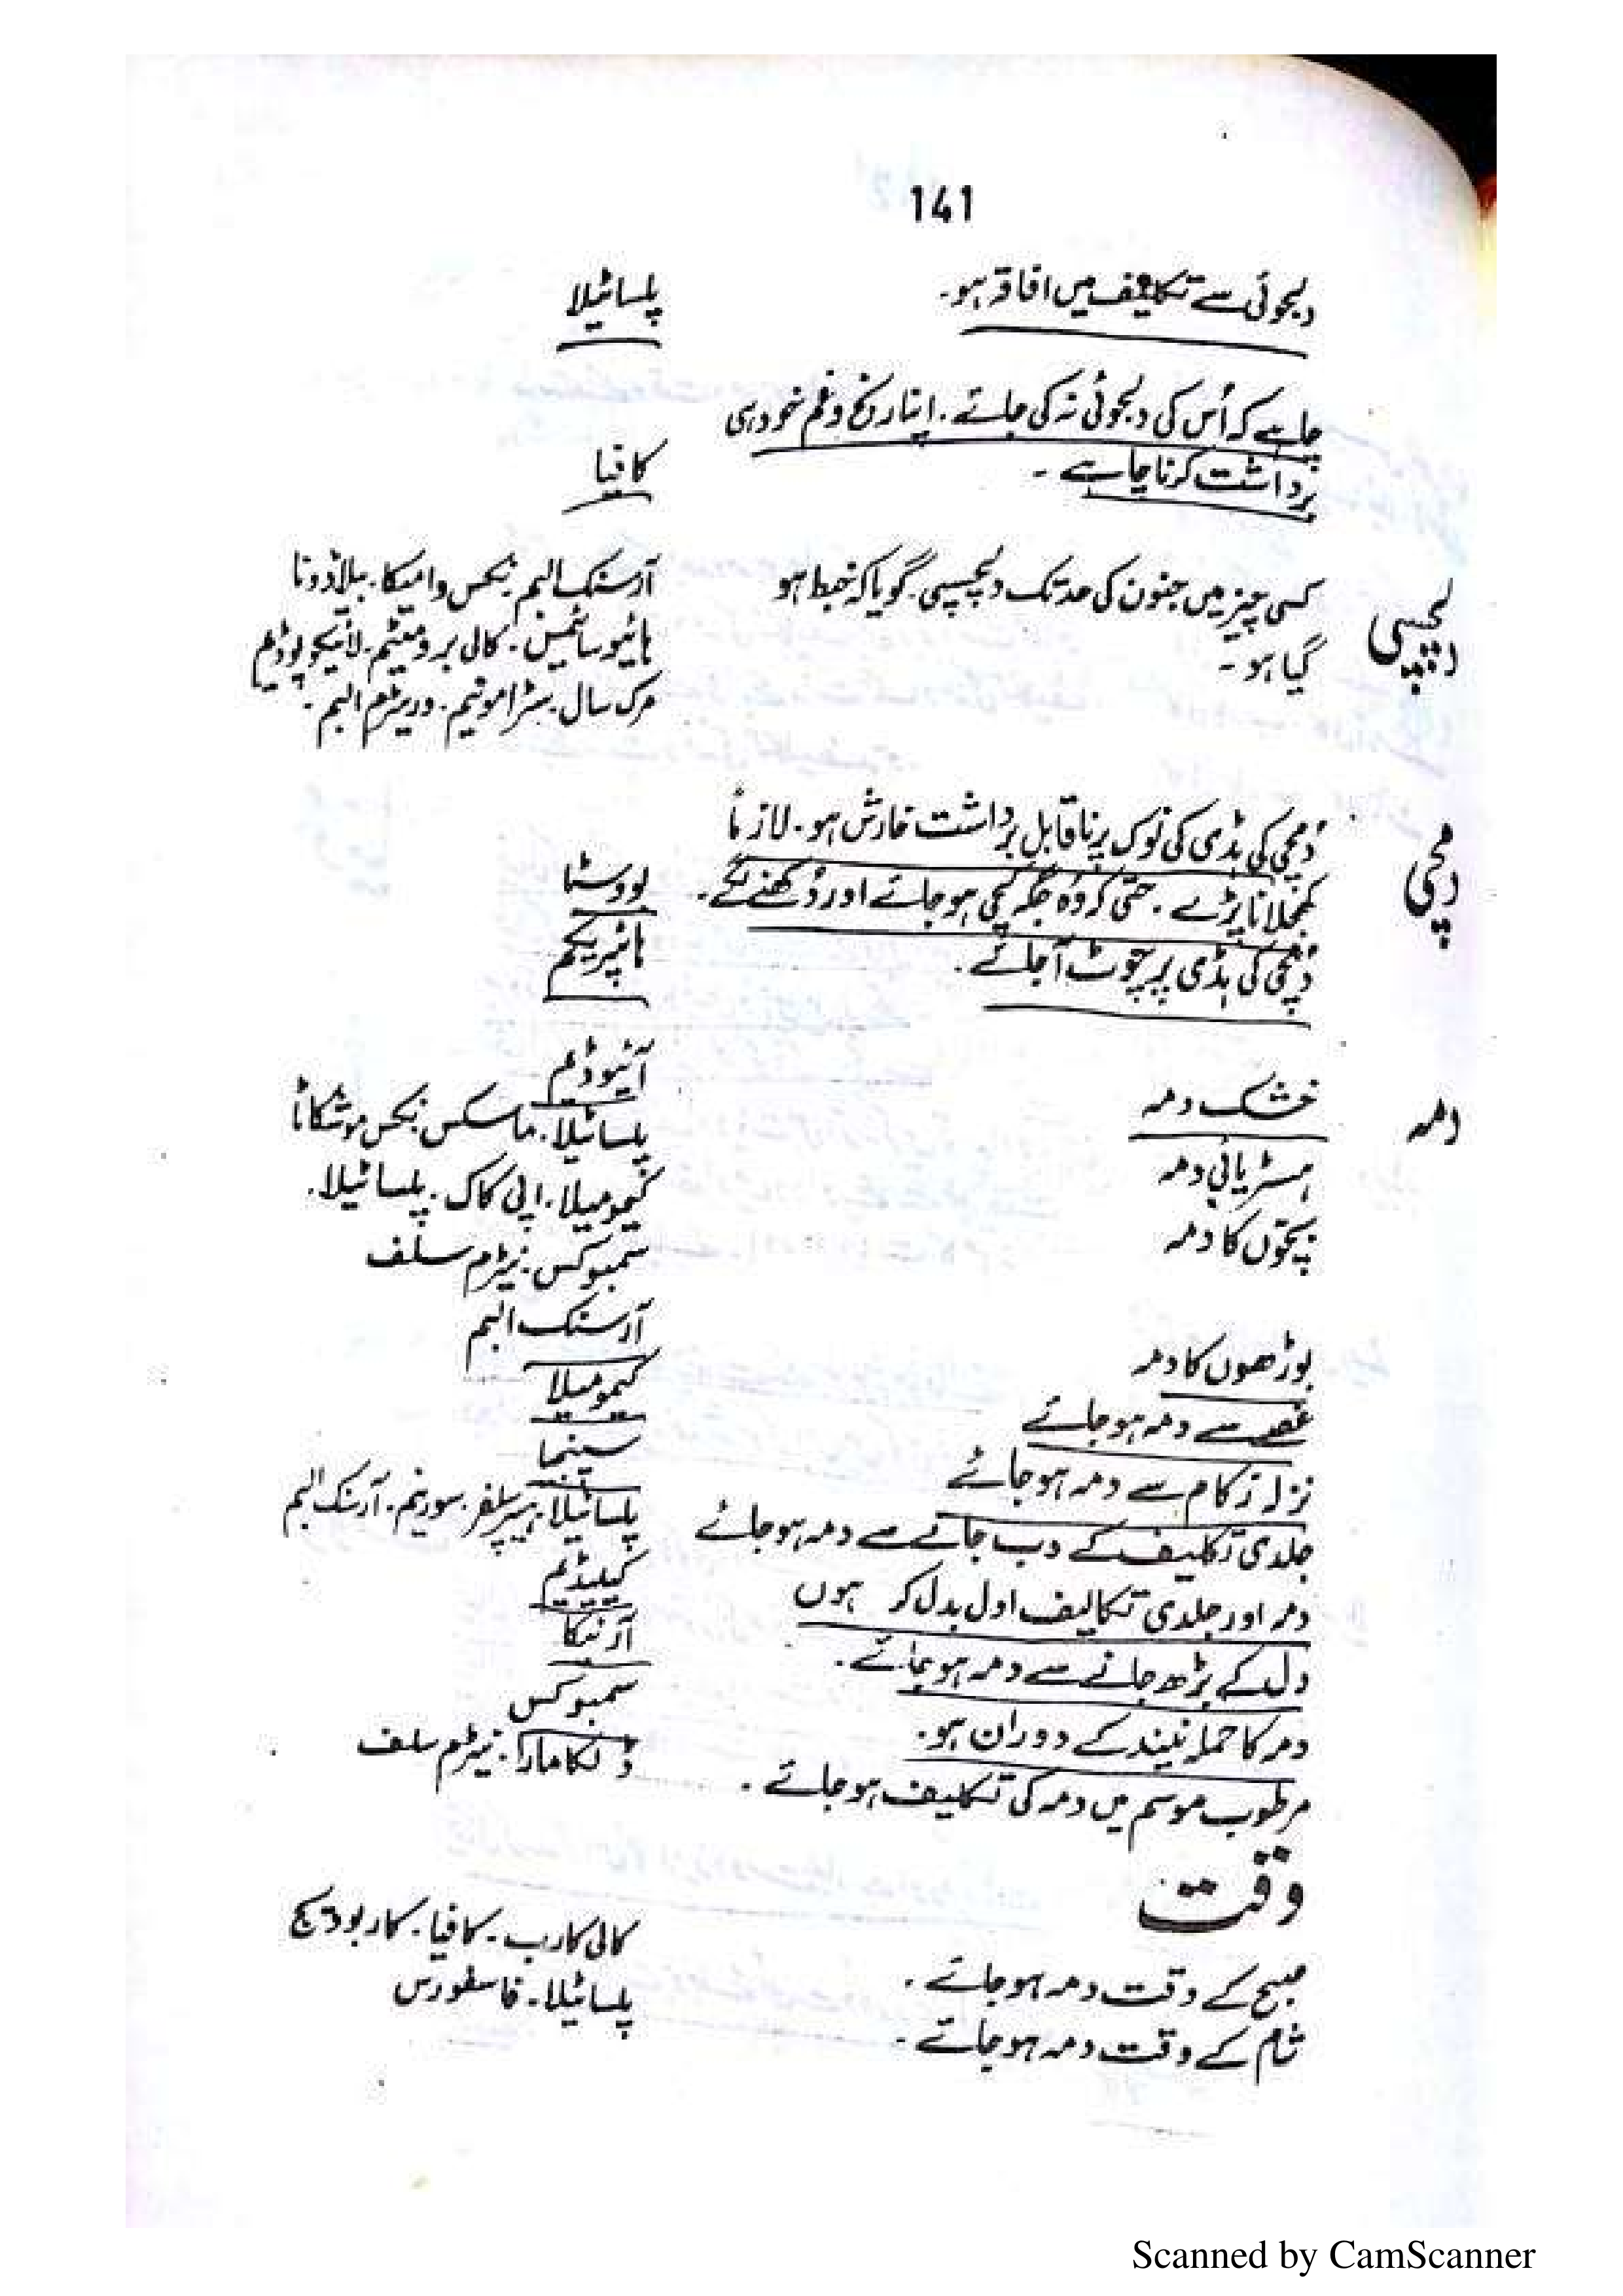 141
دلجوئی سے تکلیف میں افاقہ ہو۔ پلساٹیلا
چاہے کہ اُس کی دلجوئی نہ کی جائے۔ اپنا رنج و غم خود ہی
برداشت کرنا چاہے۔ کافیا
دلچسپی کسی چیز میں جنون کی حد تک دلچسپی۔ گویا کہ خبط ہو آرسنک البم۔ نکس وامیکا۔ بیلاڈونا
گیا ہو۔ ہائیوسائمس۔ کالی برومیٹم۔ لائیکوپوڈیم
مرک سال۔ سٹرامونیم۔ وریٹرم البم۔
دمچی دُمچی کی ہڈی کی نوک پر ناقابل برداشت خارش ہو۔ لازماً
کھجلانا پڑے۔ حتیٰ کہ وہ جگہ کچی ہو جائے اور دُکھنے لگے۔ بووسٹا
دُمچی کی ہڈی پر چوٹ آ جائے۔ ہائپریکم
دمہ خشک دمہ آئیوڈیم
ہسٹریائی دمہ پلساٹیلا۔ ماسکس۔ نکس موشکاٹا
بچوں کا دمہ کیمومیلا۔ اپی کاک۔ پلساٹیلا۔
سمبوکس۔ نیٹرم سلف
بوڑھوں کا دمہ آرسنک البم
غصے سے دمہ ہو جائے کیمومیلا
نزلہ زکام سے دمہ ہو جائے
جلدی تکلیف کے دب جانے سے دمہ ہو جائے پلساٹیلا۔ ہیپر سلفر۔ سورینم۔ آرسنک البم
دمہ اور جلدی تکالیف ادل بدل کر ہوں کیلیڈیم
دل کے بڑھ جانے سے دمہ ہو جائے۔ آرنیکا
دمہ کا حملہ نیند کے دوران ہو۔ سمبوکس
مرطوب موسم میں دمہ کی تکلیف ہو جائے۔ ڈلکامارا۔ نیٹرم سلف
وقت
صبح کے وقت دمہ ہو جائے۔ کالی کارب۔ کافیا۔ کاربوویج
شام کے وقت دمہ ہو جائے۔ پلساٹیلا۔ فاسفورس
Scanned by CamScanner